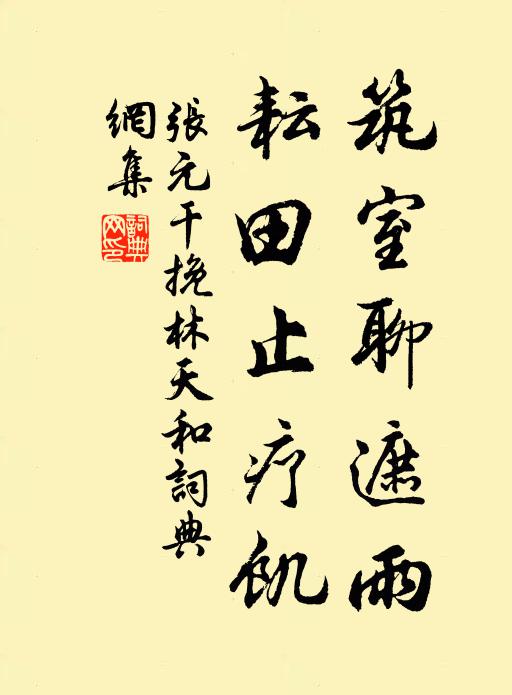 筑室聊遮雨
耘田止疗飢
張元干挽林天和詞典
網集
詞典
网印